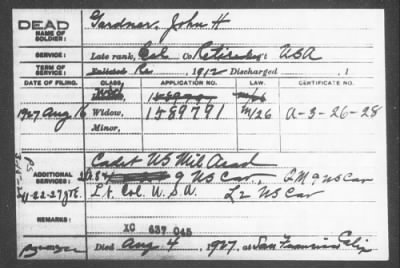 DEAD
NAME OF SOLDIER: Gardner, John H
SERVICE: Late rank, Col Co Retired U S A
TERM OF SERVICE: Enlisted Re 1912 Discharged , 1
DATE OF FILING. CLASS. APPLICATION NO. LAW. CERTIFICATE NO.
1927 Aug 16 Widow, 1589791 M/26 A-3-26-28
Minor,
Cadet US Mil Acad
ADDITIONAL SERVICES: 9 US Cav., Q M 9 US Cav
11-22-27 Lt. Col. U.S.A. L 2 US Cav
REMARKS: XC 637 045
Died Aug 4, 1927, at San Francisco Calif